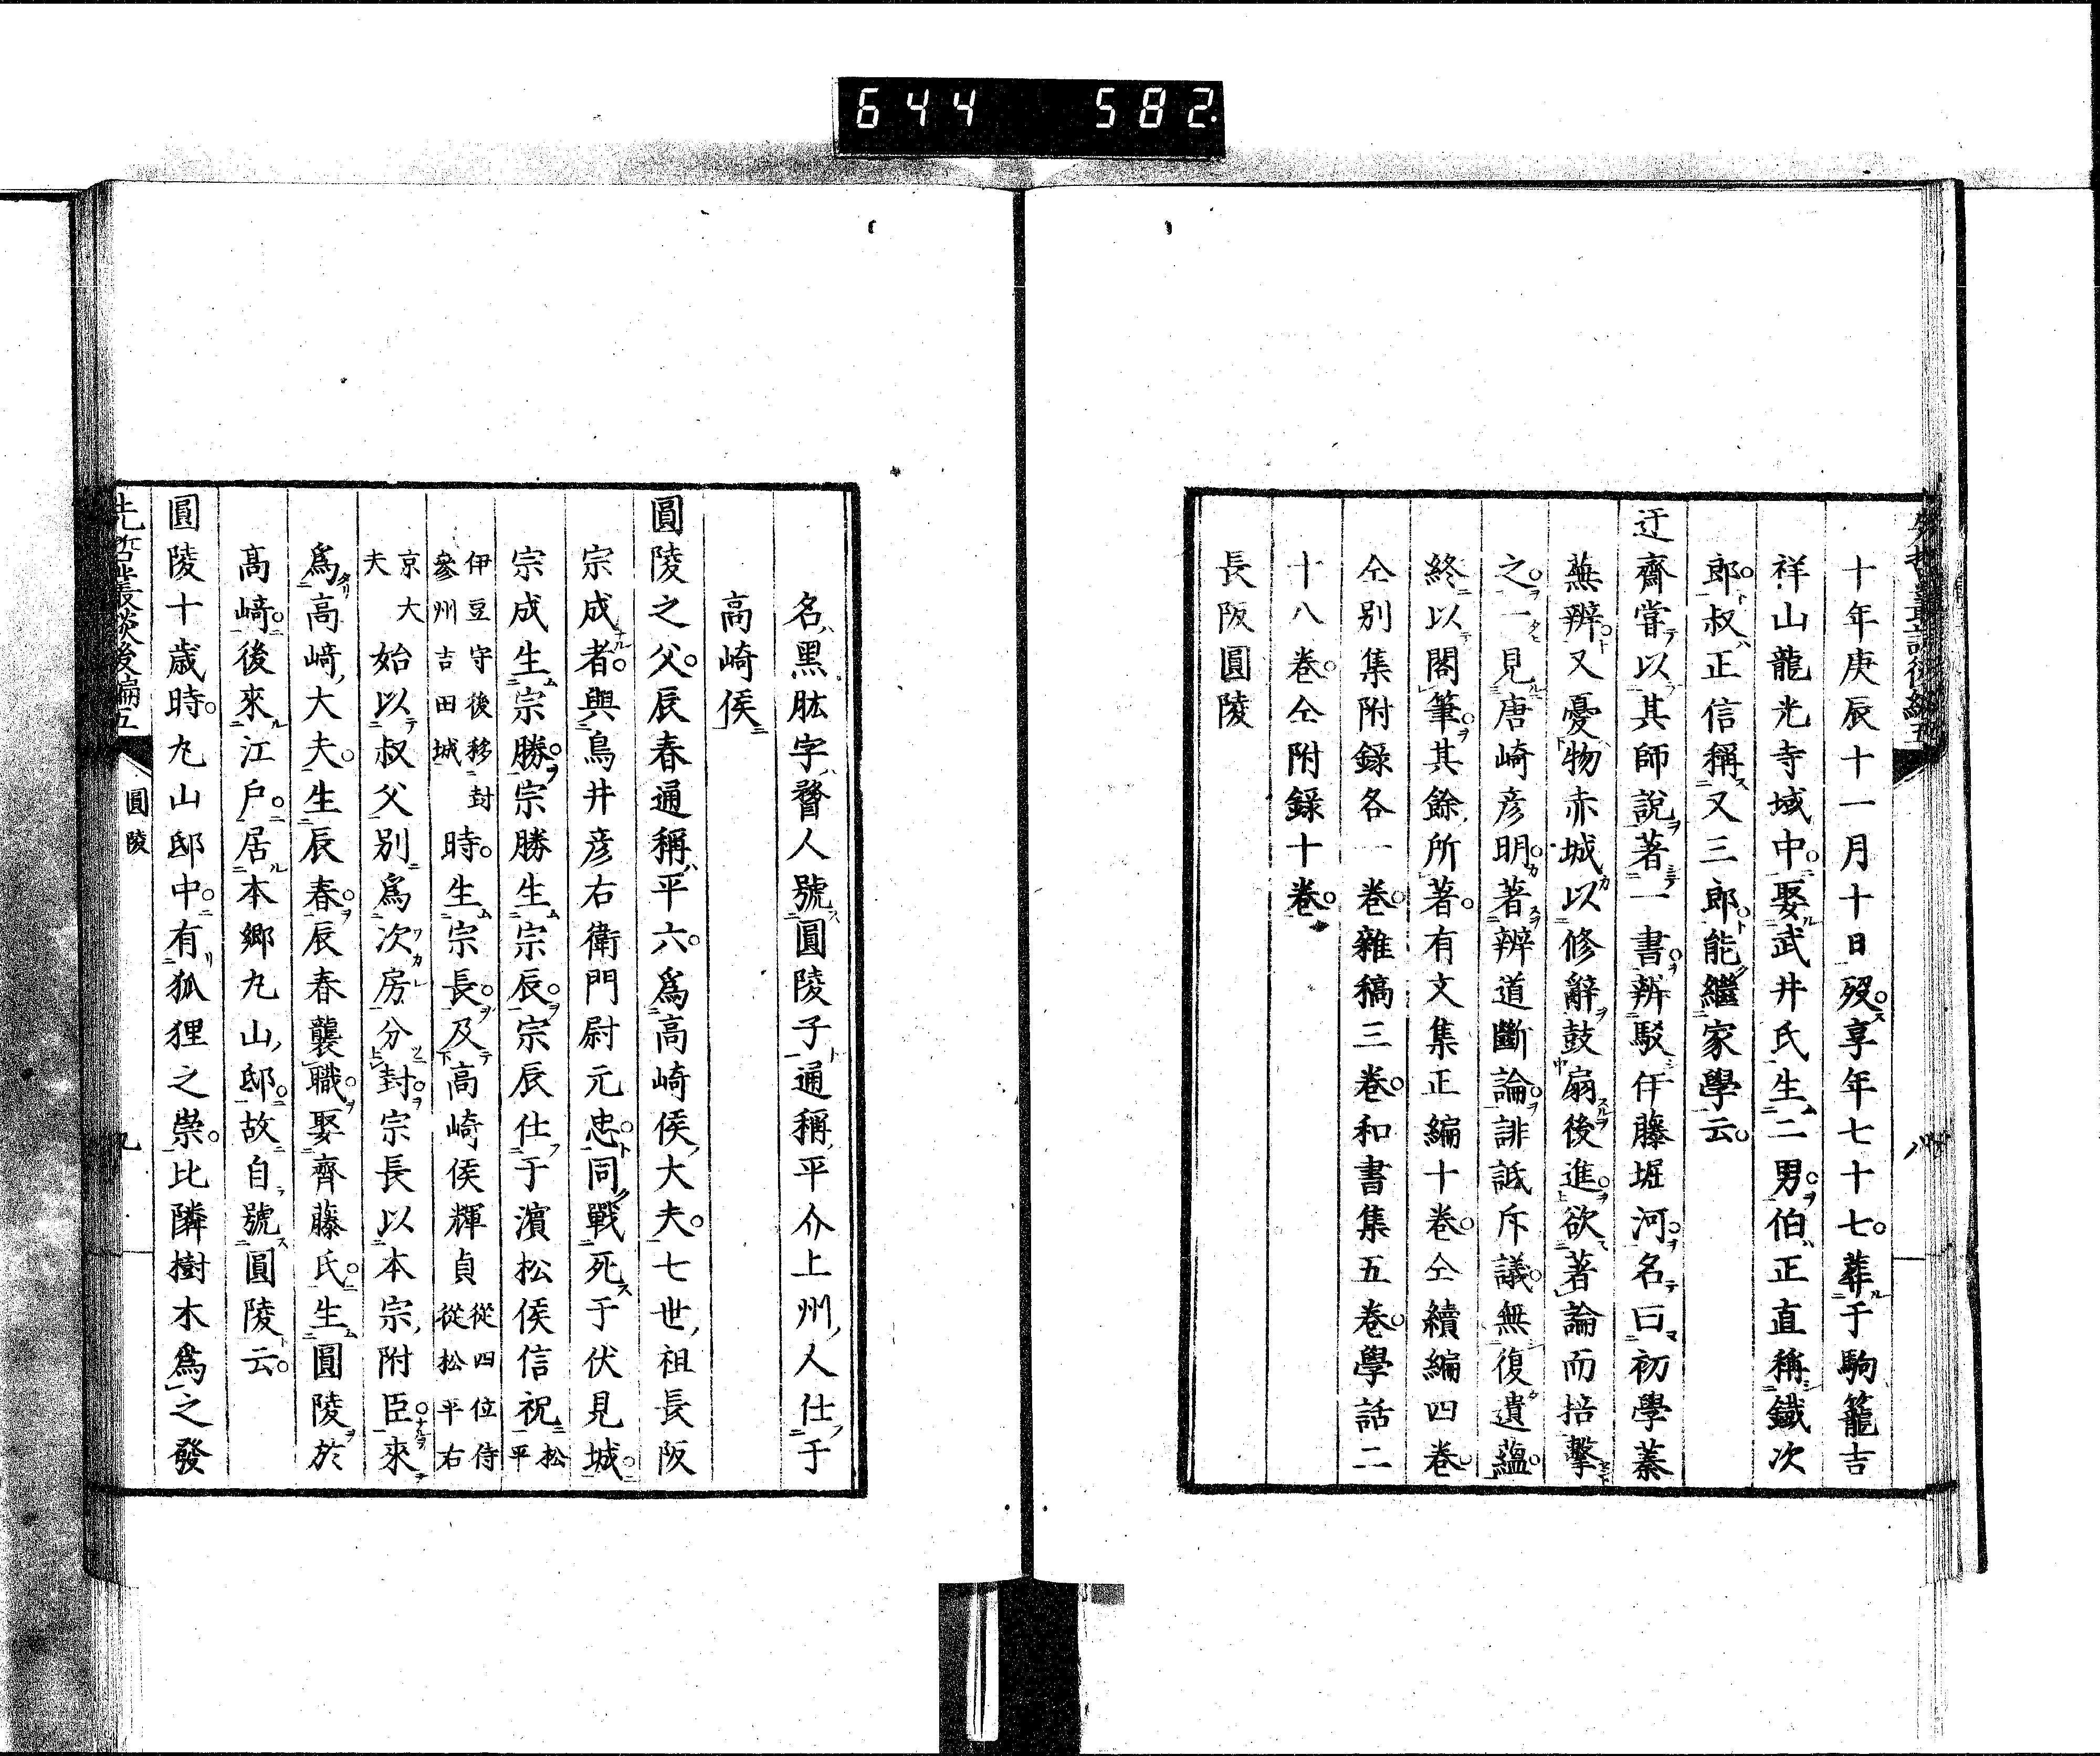 644 582
十年庚辰十一月十日歿享年七十七葬于駒籠吉
祥山龍光寺域中娶武井氏生二男伯正直稱鐵次
郎叔正信稱又三郎能繼家學云
迂齋嘗以其師說著一書辨駁伊藤堀河名曰初學蓁
蕪辨又憂物赤城以修辭鼓扇後進欲著論而掊擊
之一見唐崎彦明著辨道斷論誹詆斥議無復遺蘊
終以閣筆其餘所著有文集正編十卷仝續編四卷
仝別集附錄各一卷雜稿三卷和書集五卷學話二
十八卷仝附錄十卷
長阪圓陵
名黑肱字瞀人號圓陵子通稱平介上州人仕于
高崎侯
圓陵之父辰春通稱平六爲高崎侯大夫七世祖長阪
宗成者與鳥井彦右衛門尉元忠同戰死于伏見城
宗成生宗勝宗勝生宗辰宗辰仕于濱松侯信祝松平
伊豆守後移封參州吉田城時生宗長及高崎侯輝貞從四位侍從松平右
京大夫始以叔父別爲次房分封宗長以本宗附臣來
爲高崎大夫生辰春辰春襲職娶齊藤氏生圓陵於
高崎後來江戶居本鄉丸山邸故自號圓陵云
圓陵十歲時丸山邸中有狐狸之祟比隣樹木爲之發
先哲叢談後編五
圓陵
九